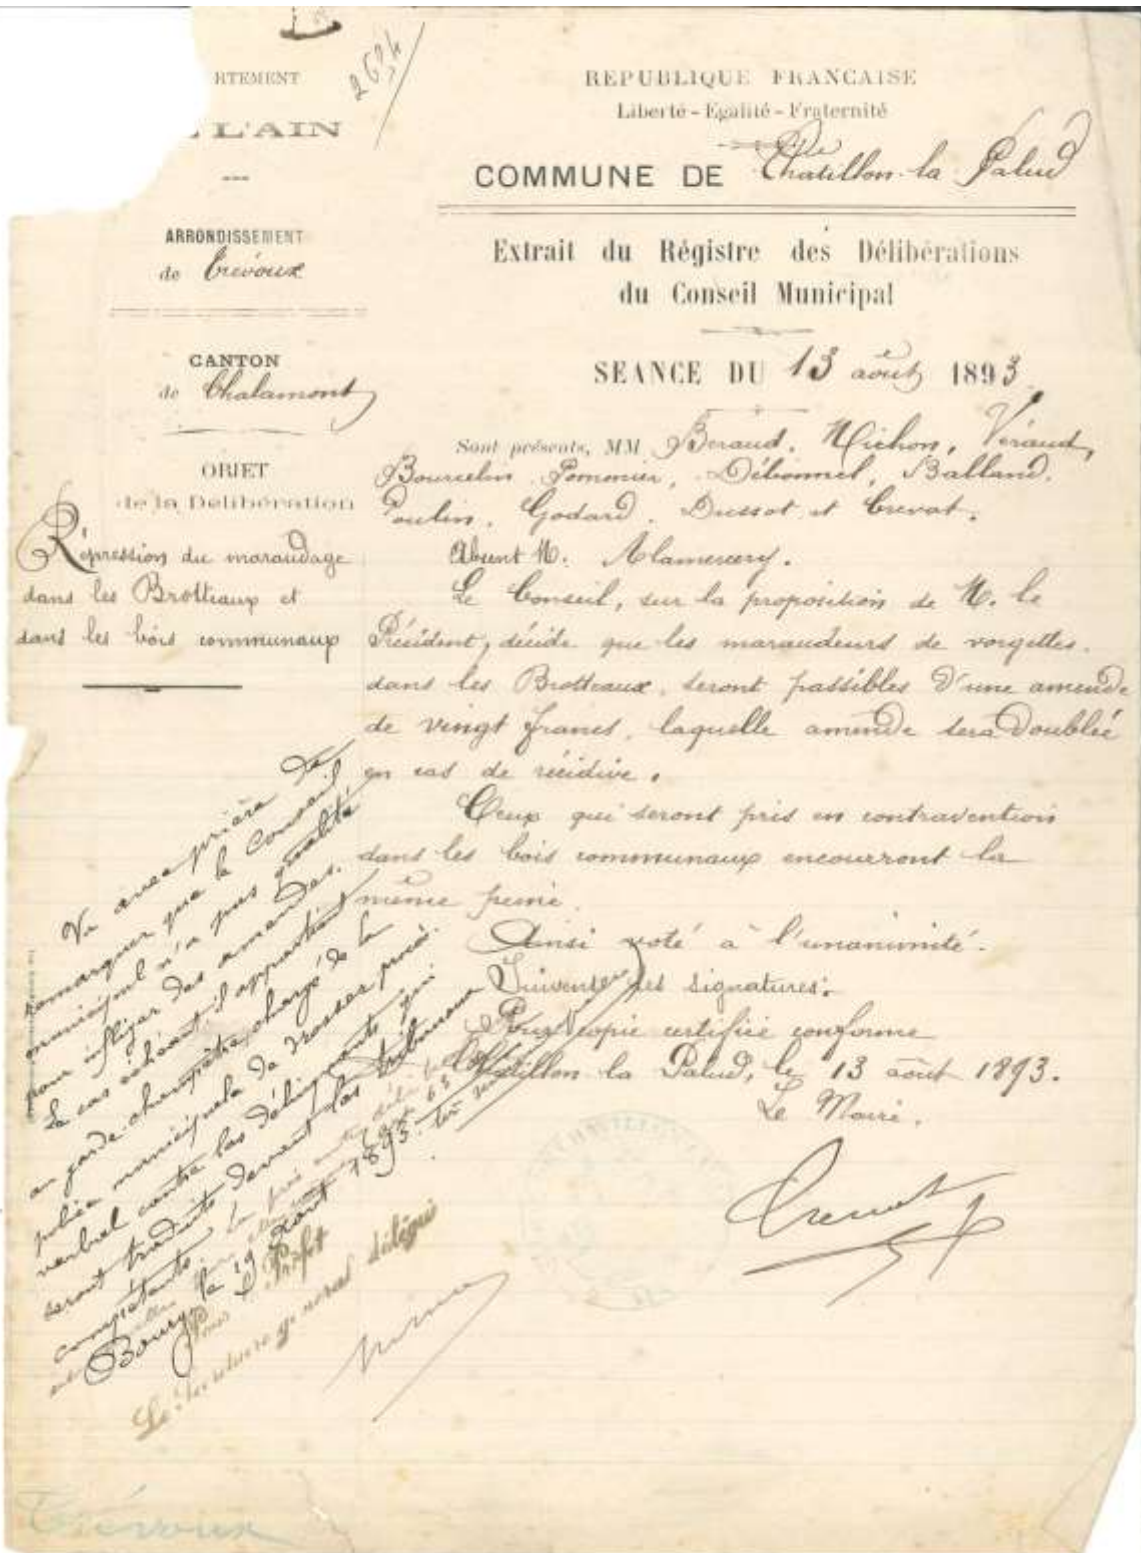 2634
RTEMENT
L'AIN
ARRONDISSEMENT
de Trévoux
CANTON
de Chalamont
OBJET
de la Délibération
Répression du maraudage
dans les Brotteaux et
dans les bois communaux
REPUBLIQUE FRANCAISE
Liberté - Egalité - Fraternité
COMMUNE DE Chatillon-la Palud
Extrait du Régistre des Délibérations
du Conseil Municipal
SEANCE DU 13 août 1893
Sont présents, MM Beraud, Michon, Véraud,
Bourcelin, Pommier, Débonnel, Balland,
Poulin, Godard, Dussot et Crevat.
Absent M. Alamercery.
Le Conseil, sur la proposition de M. le
Président, décide que les maraudeurs de vorgettes
dans les Brotteaux, seront passibles d'une amende
de vingt francs, laquelle amende sera doublée
en cas de récidive.
Ceux qui seront pris en contravention
dans les bois communaux encourront la
même peine.
Ainsi voté à l'unanimité.
Suivent les signatures.
Pour copie certifiée conforme
Chatillon la Palud, le 13 août 1893.
Le Maire,
Crevat
Vu avec prière de
remarquer que le Conseil
municipal n'a pas qualité
pour infliger des amendes.
Le cas échéant il appartient
au garde champêtre chargé de la
police municipale de dresser procès
verbal contre les délinquants qui
seront traduits devant les tribunaux
compétents.
Bourg, le 19 août 1893.
Pour le Préfet
Le Secrétaire général délégué
Trévoux